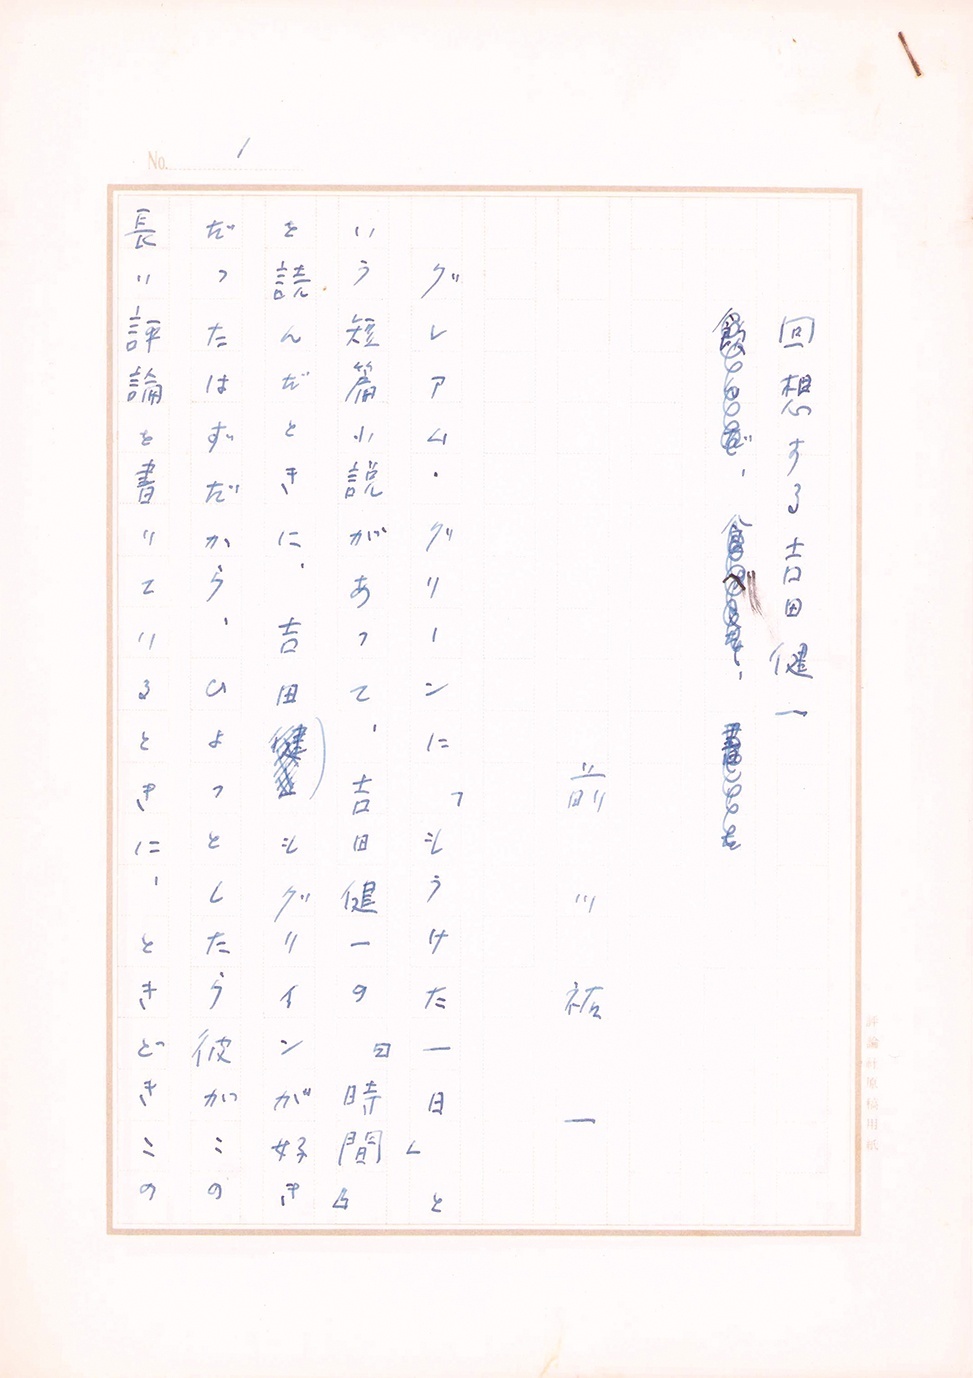 No. 1
回想する吉田健一
前川祐一
グレアム・グリーンに「もうけた一日」と
いう短篇小説があって、吉田健一の『時間』
を読んだときに、吉田もグリインが好き
だったはずだから、ひょっとしたら彼がこの
長い評論を書いているときに、ときどきこの
評論社原稿用紙